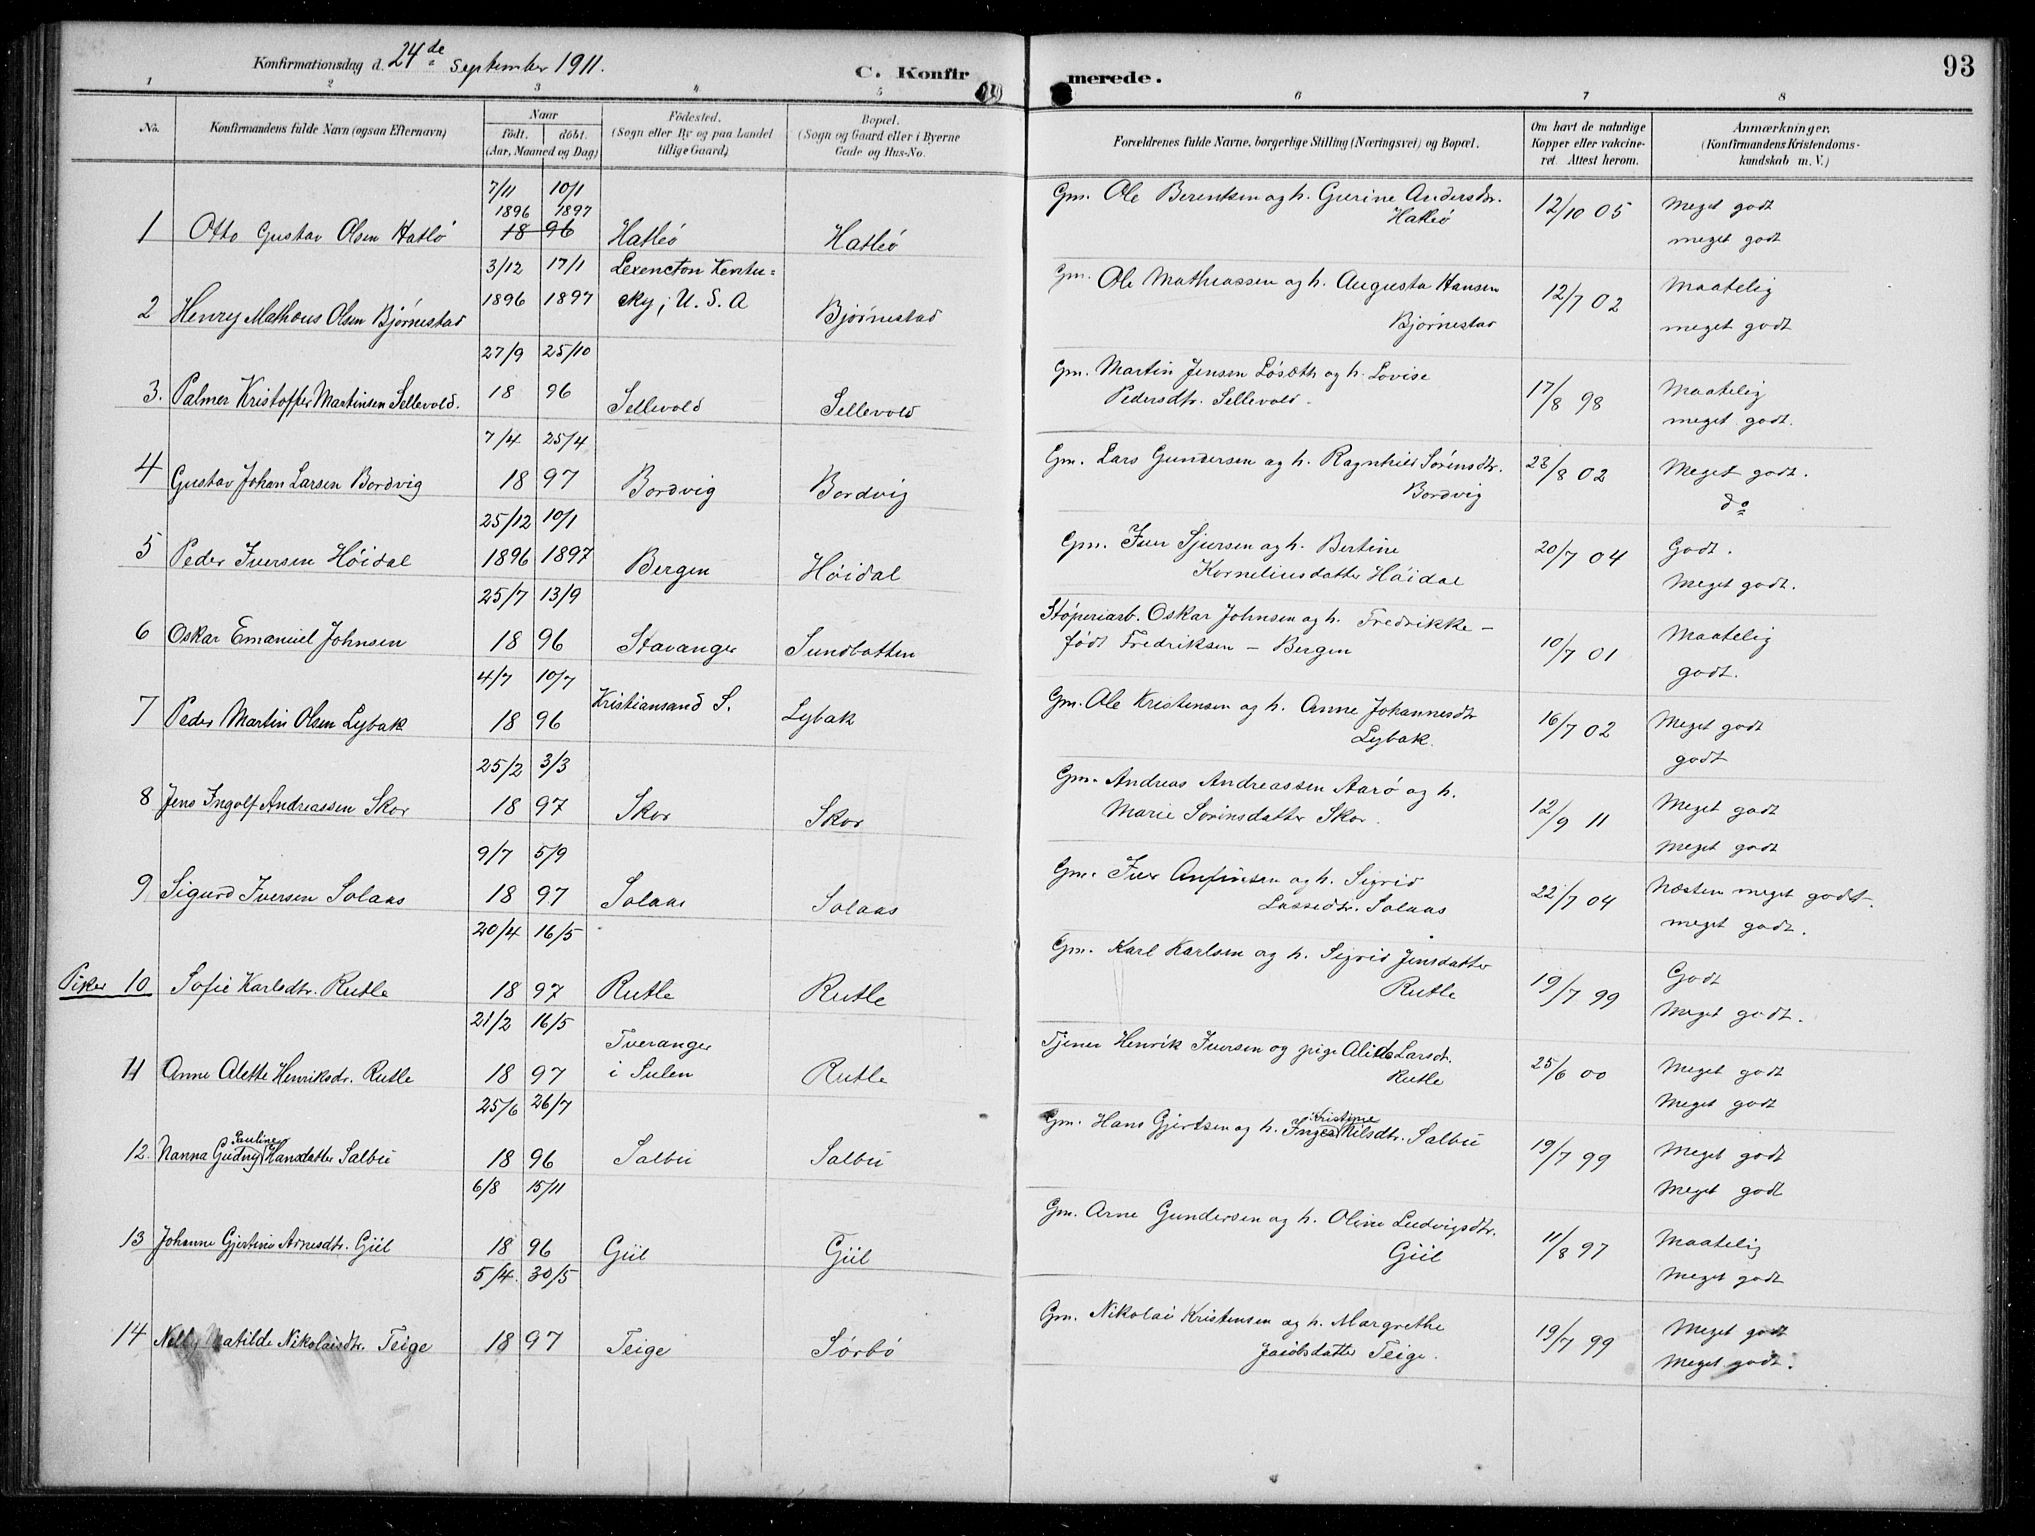 Konfirmationsdag d. 24de September 1911.
C. Konfirmerede.
93
1 2 3 4 5 6 7 8
No. Konfirmandens fulde Navn (ogsaa Efternavn) Naar født. døbt. (Aar, Maaned og Dag) Fødested. (Sogn eller By og paa Landet tillige Gaard) Bopæl. (Sogn og Gaard eller i Byerne Gade og Hus-No. Forældrenes fulde Navne, borgerlige Stilling (Næringsvei) og Bopæl. Om havt de naturlige Kopper eller vakcineret. Attest herom. Anmærkninger. (Konfirmandens Kristendomskundskab m. V.)
1 Otto Gustav Olsen Hatlø 7/11 1896 10/1 1897 18 96 Hatleø Hatleø Gm. Ole Berentsen og h. Gurine Andersdtr. Hatleø 12/10 05 Meget godt meget godt
2 Henry Matheus Olsen Bjørnestad 3/12 1896 17/1 1897 Lexencton Kentucky, U. S. A Bjørnestad Gm. Ole Mathiassen og h. Augusta Hansen Bjørnestad 12/7 02 Maatelig meget godt
3. Palmer Kristoffer Martinsen Sellevold. 27/9 25/10 18 96 Sellevold Sellevold Gm. Martin Jensen Løsæth og h. Lovise Pedersdtr. Sellevold. 17/8 98 Maatelig meget godt.
4 Gustav Johan Larsen Bordvig 7/4 25/4 18 97 Bordvig Bordvig Gm. Lars Gundersen og h. Ragnhild Sørensdtr. Bordvig 23/8 02 Meget godt. do
5 Peder Iversen Høidal 25/12 1896 10/1 1897 Bergen Høidal Gm. Iver Sjursen og h. Bertine Korneliusdatter Høidal 20/7 04 Godt. Meget godt.
6 Oskar Emanuel Johnsen 25/7 13/9 18 96 Stavanger Sundbotten Støperiarb. Oskar Johnsen og h. Fredrikke – født Fredriksen – Bergen 10/7 01 Maatelig godt.
7 Peder Martin Olsen Lybak 4/7 10/7 18 96 Kristiansand S. Lybak Gm. Ole Kristensen og h. Anne Johannesdtr Lybak. 16/7 02 Meget godt godt
8 Jens Ingolf Andreassen Skor 25/2 3/3 18 97 Skor Skor Gm. Andreas Andreassen Aarø og h. Marie Sørinsdatter Skor. 12/9 11 Meget godt Meget godt
9 Sigurd Iversen Solaas 9/7 5/9 18 97 Solaas Solaas Gm. Iver Anfinsen og h. Sigrid Lassedtr. Solaas 22/7 04 Næsten meget godt. meget godt.
Piker 10 Sofie Karlsdtr. Rutle 20/4 16/5 18 97 Rutle Rutle Gm. Karl Karlsen og h. Sigrid Jensdatter Rutle 19/7 99 Godt Meget godt.
11 Anne Alette Henriksdr. Rutle 21/2 16/5 18 97 Tveranger i Sulen Rutle Tjener Henrik Iversen og pige Alida Larsdr. Rutle 25/6 00 Meget godt Meget godt
12. Nanna Gudny Pauline Hansdatter Salbu 25/6 26/7 18 96 Salbu Salbu Gm. Hans Gjertsen og h. Inger Kristine Nilsdtr. Salbu 19/7 99 Meget godt Meget godt
13 Johanne Gjertine Arnesdtr. Giil 6/8 15/11 18 96 Giil Giil Gm. Arne Gundersen og h. Oline Ludvigsdtr. Giil 11/8 97 Maatelig Meget godt
14 Nelly Matilde Nikolaisdtr. Teige 5/4. 30/5 18 97 Teige Sørbø Gm. Nikolai Kristensen og h. Margrethe Jacobsdatter Teige. 19/7 99 Meget godt Meget godt.